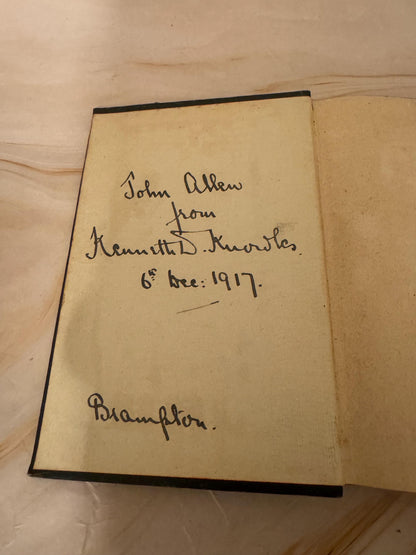 John Allen
from
Kenneth D. Knowles.
6th Dec: 1917.
Brampton.